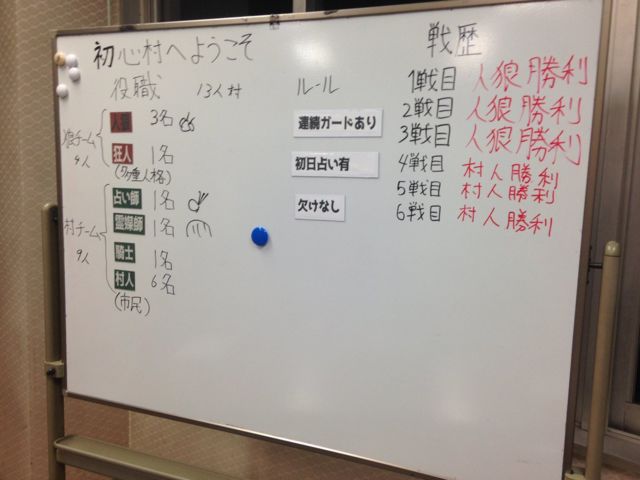 初心村へようこそ
役職 13人村
狼チーム
4人
人狼 3名
狂人 1名
(多重人格)
村チーム
9人
占い師 1名
霊媒師 1名
騎士 1名
村人 6名
(市民)
ルール
連続ガードあり
初日占い有
欠けなし
戦歴
1戦目 人狼勝利
2戦目 人狼勝利
3戦目 人狼勝利
4戦目 村人勝利
5戦目 村人勝利
6戦目 村人勝利